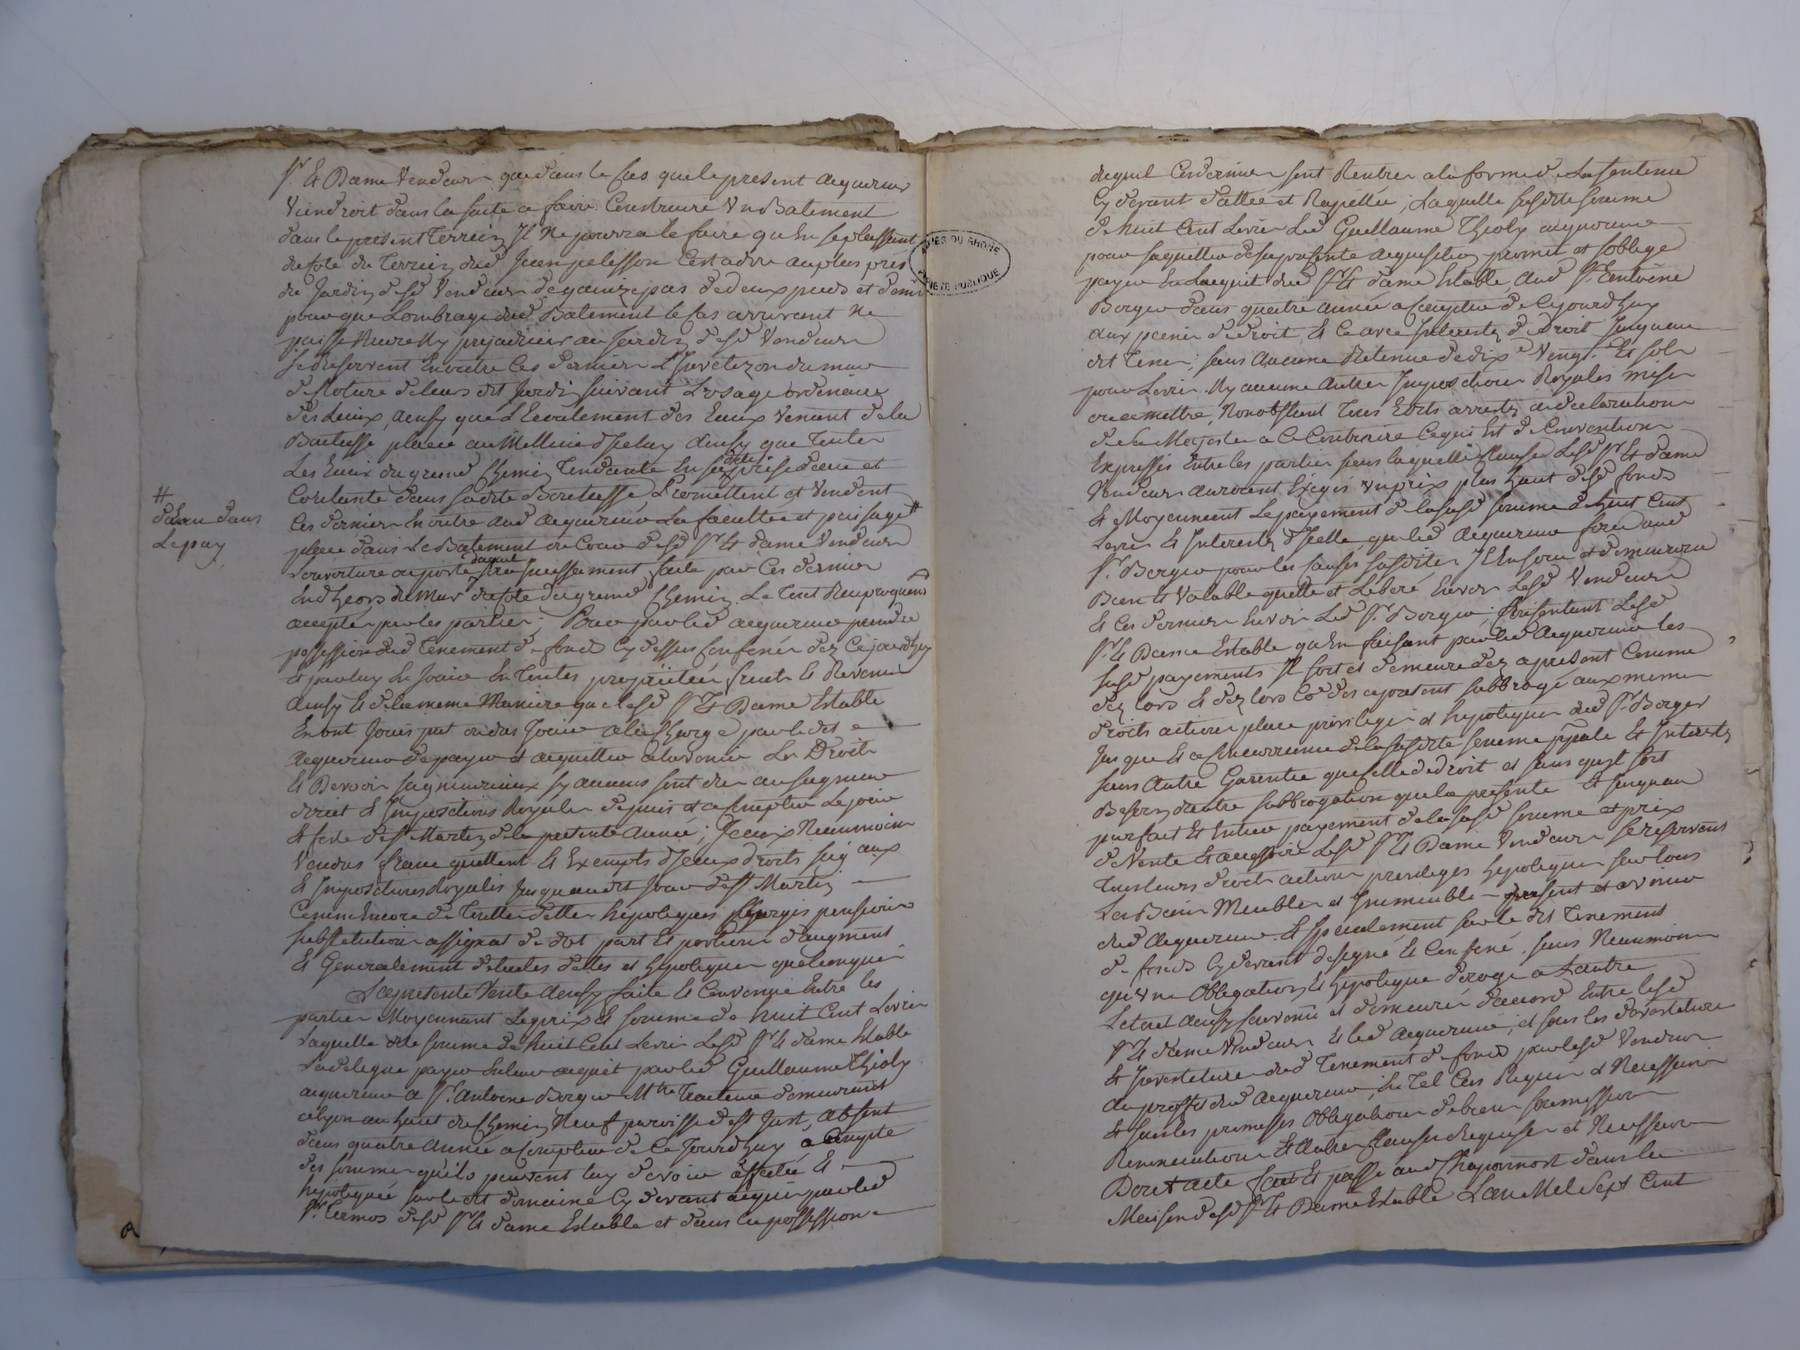 Sr. Et Dame Vendeurs que dans le Cas que le present acquereur
Viendroit dans la suite a faire Construire Un Batiment
dans le present terrein, Il ne pourra le faire qu'en se plassant
du coté du terrein dud. Jean pelisson C'est adire au plus près
du Jardin desd. Vendeurs de quinze pas de deux pieds et demi
pour que Lombrage dud. Batiment le Cas arrivant Ne
puisse Nuire Ny prejudicier au Jardin desd. Vendeurs
Se reservent En outre Ces derniers
de Cloture de leurs dit Jardin suivant L'usage ordinaire
des Lieux, Ainsy que L'Ecoulement des Eaux Venant de la
placée au Millieu d'Iceluy Ainsy que toutes
Les Eaux du grand Chemin tendante En sa ditte prise d'eau et
Coulante dans sadite Promettent et Vendent
Ces derniers En outre aud. acquereur La faculté et puisage #
# d'Eau dans
Le puy
place dans Le Batiment ou Cour desd. Sr. Et dame Vendeurs
L'ouverture ou porte duquel sera Incessamment faite par Ces derniers
En d'heors du Mur du coté du grand Chemin. Le tout Reciproquent
accepté par les parties; Pour par led. acquereur prendre
possession dud. tenement de fond Cy dessus Confiné dez Cejourd'huy
Et par luy En Jouir En toutes proprietéz fruits Et Revenus
Ainsy Et de la meme Maniere que lesd. Sr. Et Dame Estable
En ont Jouis put ou du Jouir a la Charge par le dit
acquereur de payer et acquitter a la venir Les Droits
Et Devoirs seigneuriaux sy aucuns sont dus au seigneur
direct Et Impositions Royales depuis et a Compter Le jour
Et fete de St. Martin de la presente Année; Iceux Neanmoins
Vendus franc quittent Et Exempts d'Iceux droits seigaux
Et Impositions Royales Jusques audt Jour de St. Martin
Comme Encore de toutes dettes hipoteques pensions
substitution assignat de dot part Et portion d'augment
Et Generalement de toutes dettes et hypoteques quelconques
La presente Vente Ainsy faite Et Convenue Entre les
parties Moyennant Le prix Et somme de huit Cent Livres
Laquelle dite somme de huit Cent Livres Lesd. Sr. Et dame Estable
delegue payer En leur acquit par led. Guillaume Thioly
acquereur a Sr. Antoine Berger Mtre Traiteur demeurant
a Lyon au haut du Chemin Neuf paroisse de St. Just, absent
dans quatre Année a Compter de Ce Jourd'huy a Compte
des sommes qu'ils peuvent luy devoir affectée Et
hypotequée sur le dit domaine Cy devant acquis par led.
Sr. desd. Sr. Et dame Estable et dans la possession
duquel Ces derniers sont Rentrer a la forme de La sentence
Cy devant dattée et Rapellée; Laquelle susdite somme
de huit Cent Livres Led. Guillaume Thioly acquereur
pour saquitter de sa presente acquisition promet et soblige
payer En Lacquit dud. Sr. Et dame Estable, aud. Sr. Antoine
Berger dans quatre Année a Compter de Cejourd'huy
aux peines de droit, Et Ce avec Interests de Droit Jusques au
dit terme; sans Aucune Retenue de dixe Vingt. Et sols
pour Livre Ny aucune autres Impositions Royales mises
ou a mettre, Nonobstant tous Edits arrests et declarations
de Sa Majesté a Ce Contraire Ce qui Est de Convention
Expresse Entre les parties sans laquelle Clause Lesd. Sr. Et dame
Vendeurs auroient Exigés un prix plus haut desd. fonds
Et Moyennant Le payement de lasusd. somme de huit Cent
Livres Et Interests d'Icelle que led. acquereur fera aud.
Sr. Berger pour les Causes susdites Il En sera et demeurera
Bien Et Valable quitte et Liberé Envers Lesd. Vendeurs
Et Ces derniers Envers Led. Sr. Berger; Consentant Lesd.
Sr. Et Dame Estable qu'En faisant par led. Acquereur les
susd. payements Il soit et demeure dez apresent Comme
dez lors Et dez lors Co dez apresent subbrogé aux memes
droits actions place privileges et hypoteques dud. Sr. Berger
Jusques Et a Concurrence de la susdite somme pple Et Interests
sans Autre Garentie que Celle de droit et sans quil soit
Besoin d'autre subbrogation que la presente Et Jusques au
parfait Et Entier payement de la susd. somme et prix
de Vente Et accessoires Lesd. Sr. Et Dame Vendeurs se reservent
tous leurs droits actions privileges hypoteques sur tous
Les Biens Meubles et Immeuble present et avenir
dud. Acquereur. Et specialement sur le dit tenement
de fonds Cy devant designé Et Confiné. sans Neanmoins
qu'une Obligation Et hypoteque deroge a Lautre
Le tout ainsy Convenu et demeurer d'accord Entre lesd.
Sr. Et dame Vendeurs Et led. acquereur; et sous les devestiture
Et Investiture dud. tenement de fond par lesd. Vendeurs
au proffit dud. Acquereur, En tel Cas Requis et Necessaire
Et sous les promesses Obligations de biens soumissions
Renonciations Et Autres Clauses Requises et Necessaires
Dont acte fait Et passé aud. Chaponnost dans la
Maison desd. Sr. Et Dame Estable L'an Mil Sept Cent